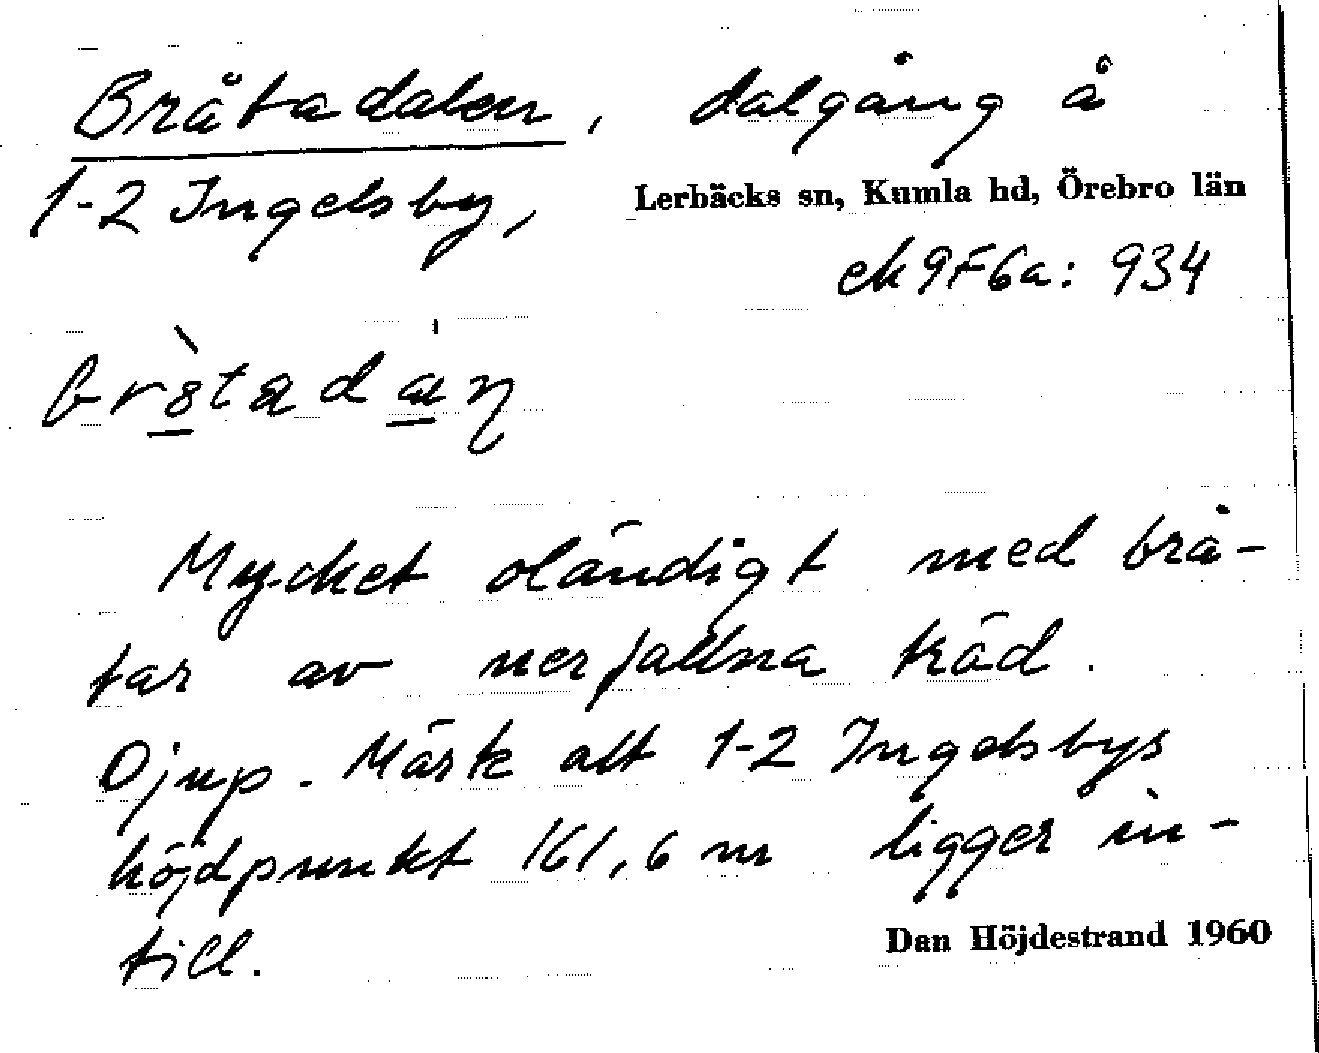 Bråtadalen, dalgång å
1-2 Ingelsby, Lerbäcks sn, Kumla hd, Örebro län
ek 9F6a: 934
Mycket oländigt med brå-
tar av nerfallna träd.
Djup. Märk att 1-2 Ingelsbys
höjdpunkt 161,6 m ligger in-
till.
Dan Höjdestrand 1960